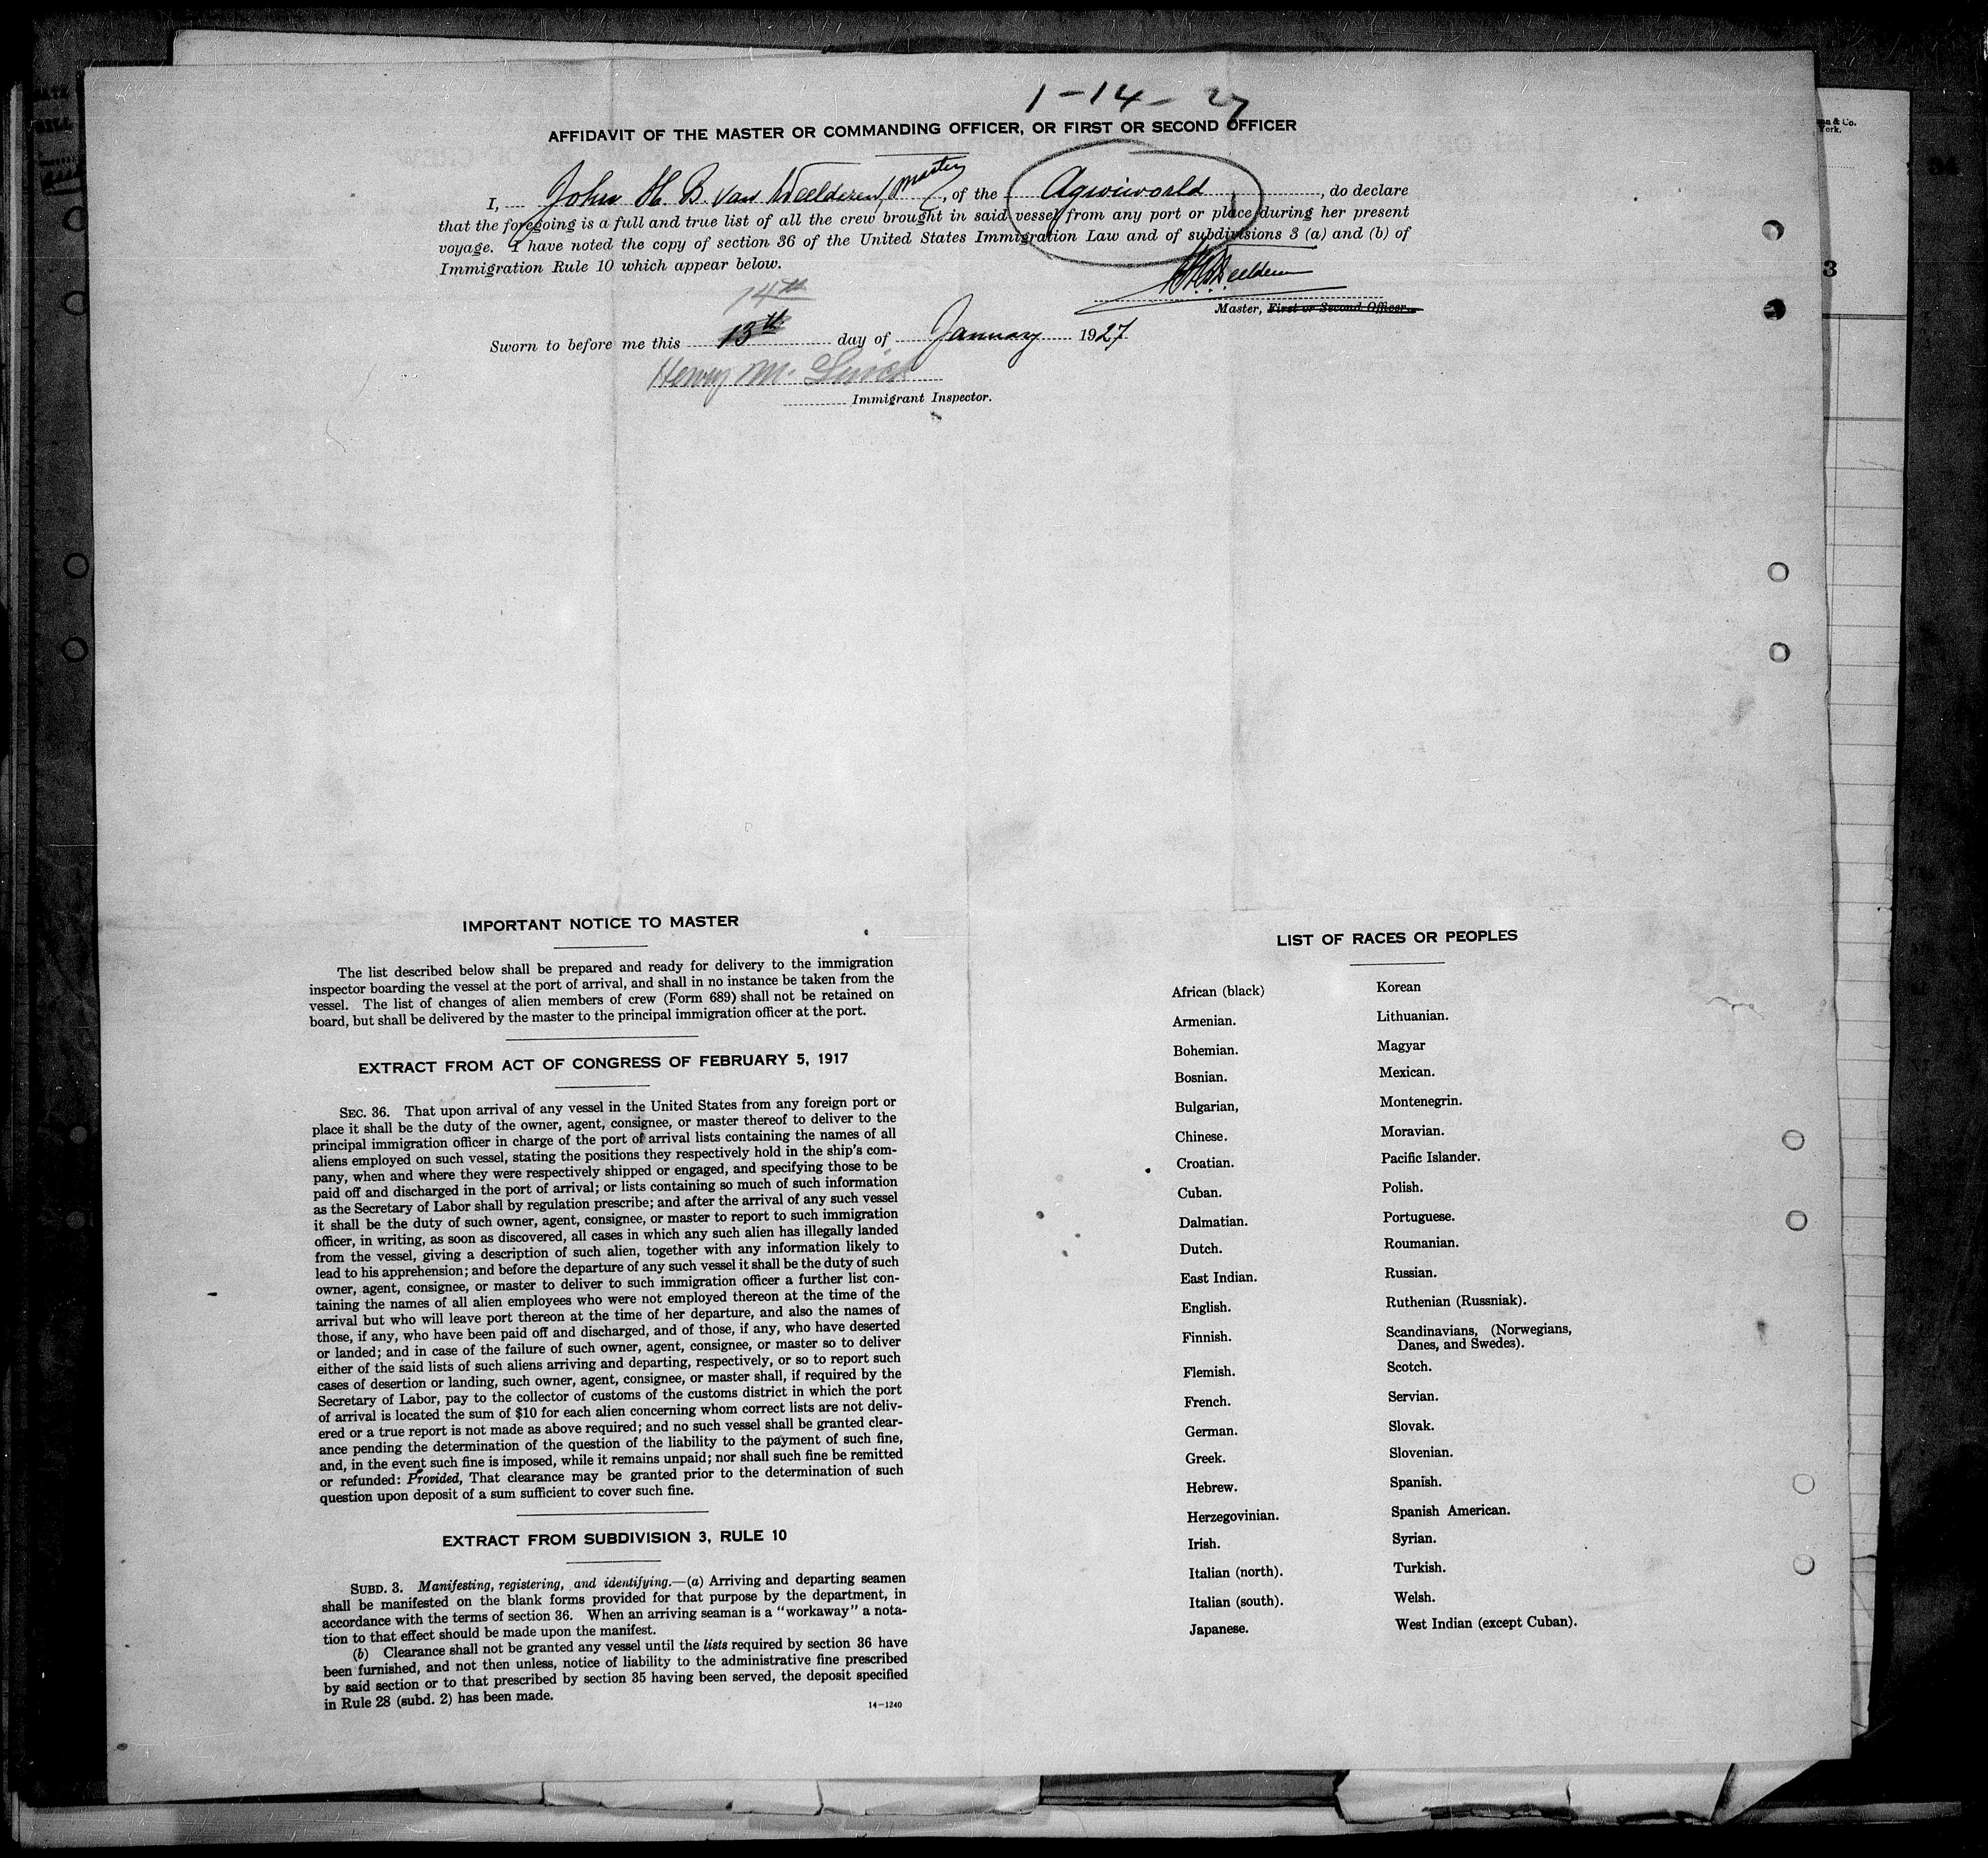 1-14-27
AFFIDAVIT OF THE MASTER OR COMMANDING OFFICER, OR FIRST OR SECOND OFFICER
I, John H. B. van Weelderen, master, of the Agwiworld, do declare
that the foregoing is a full and true list of all the crew brought in said vessel from any port or place during her present
voyage. I have noted the copy of section 36 of the United States Immigration Law and of subdivisions 3 (a) and (b) of
Immigration Rule 10 which appear below.
Master, First or Second Officer.
14th
Sworn to before me this 13th day of January 1927
Henry M.
Immigrant Inspector.
IMPORTANT NOTICE TO MASTER
The list described below shall be prepared and ready for delivery to the immigration
inspector boarding the vessel at the port of arrival, and shall in no instance be taken from the
vessel. The list of changes of alien members of crew (Form 689) shall not be retained on
board, but shall be delivered by the master to the principal immigration officer at the port.
EXTRACT FROM ACT OF CONGRESS OF FEBRUARY 5, 1917
SEC. 36. That upon arrival of any vessel in the United States from any foreign port or
place it shall be the duty of the owner, agent, consignee, or master thereof to deliver to the
principal immigration officer in charge of the port of arrival lists containing the names of all
aliens employed on such vessel, stating the positions they respectively hold in the ship's com-
pany, when and where they were respectively shipped or engaged, and specifying those to be
paid off and discharged in the port of arrival; or lists containing so much of such information
as the Secretary of Labor shall by regulation prescribe; and after the arrival of any such vessel
it shall be the duty of such owner, agent, consignee, or master to report to such immigration
officer, in writing, as soon as discovered, all cases in which any such alien has illegally landed
from the vessel, giving a description of such alien, together with any information likely to
lead to his apprehension; and before the departure of any such vessel it shall be the duty of such
owner, agent, consignee, or master to deliver to such immigration officer a further list con-
taining the names of all alien employees who were not employed thereon at the time of the
arrival but who will leave port thereon at the time of her departure, and also the names of
those, if any, who have been paid off and discharged, and of those, if any, who have deserted
or landed; and in case of the failure of such owner, agent, consignee, or master so to deliver
either of the said lists of such aliens arriving and departing, respectively, or so to report such
cases of desertion or landing, such owner, agent, consignee, or master shall, if required by the
Secretary of Labor, pay to the collector of customs of the customs district in which the port
of arrival is located the sum of $10 for each alien concerning whom correct lists are not deliv-
ered or a true report is not made as above required; and no such vessel shall be granted clear-
ance pending the determination of the question of the liability to the payment of such fine,
and, in the event such fine is imposed, while it remains unpaid; nor shall such fine be remitted
or refunded: Provided, That clearance may be granted prior to the determination of such
question upon deposit of a sum sufficient to cover such fine.
EXTRACT FROM SUBDIVISION 3, RULE 10
SUBD. 3. Manifesting, registering, and identifying.—(a) Arriving and departing seamen
shall be manifested on the blank forms provided for that purpose by the department, in
accordance with the terms of section 36. When an arriving seaman is a "workaway" a nota-
tion to that effect should be made upon the manifest.
(b) Clearance shall not be granted any vessel until the lists required by section 36 have
been furnished, and not then unless, notice of liability to the administrative fine prescribed
by said section or to that prescribed by section 35 having been served, the deposit specified
in Rule 28 (subd. 2) has been made.
14-1240
LIST OF RACES OR PEOPLES
African (black)
Armenian.
Bohemian.
Bosnian.
Bulgarian,
Chinese.
Croatian.
Cuban.
Dalmatian.
Dutch.
East Indian.
English.
Finnish.
Flemish.
French.
German.
Greek.
Hebrew.
Herzegovinian.
Irish.
Italian (north).
Italian (south).
Japanese.
Korean
Lithuanian.
Magyar
Mexican.
Montenegrin.
Moravian.
Pacific Islander.
Polish.
Portuguese.
Roumanian.
Russian.
Ruthenian (Russniak).
Scandinavians, (Norwegians,
Danes, and Swedes).
Scotch.
Servian.
Slovak.
Slovenian.
Spanish.
Spanish American.
Syrian.
Turkish.
Welsh.
West Indian (except Cuban).
& Co.
York.
3